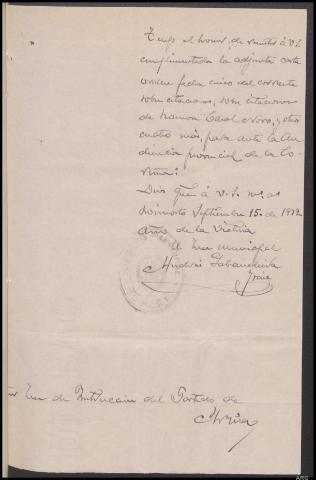 Tengo el honor de remitir á V.S.
cumplimentada la adjunta carta
orden fecha cinco del corriente
sobre citaciones, sobre citaciones
de Ramon Casal Novo, y otros
cuatro más, para ante la Au
diencia provincial de la Co-
ruña:
Dios gue á V.S. ms. as
Septiembre 15. de 1939.
Año de la Victoria
El Juez municipal
Andrés
Juez de Instrucción del Partido de